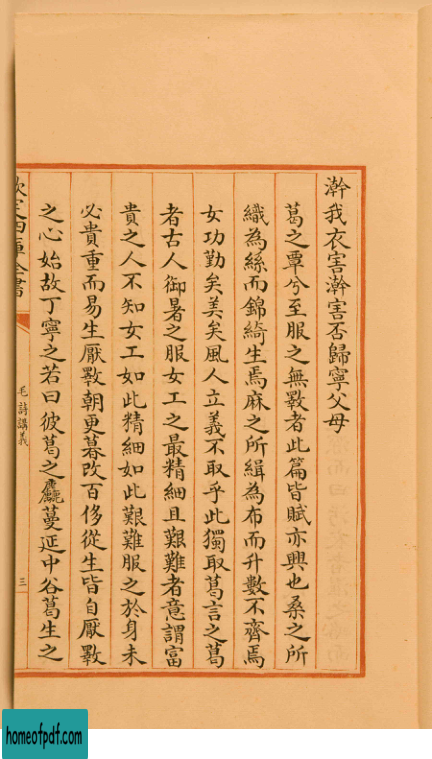 澣我衣害澣害否歸寧父母
葛之覃兮至服之無斁者此篇皆賦亦興也桑之所
織為絲而錦綺生焉麻之所緝為布而升數不齊焉
女功勤矣美矣風人立義不取乎此獨取葛言之葛
者古人御暑之服女工之最精細且艱難者意謂富
貴之人不知女工如此精細如此艱難服之於身未
必貴重而易生厭斁朝更暮改百侈從生皆自厭斁
之心始故丁寧之若曰彼葛之麤蔓延中谷葛生之
欽定四庫全書
毛詩講義
三
homeofpdf.com